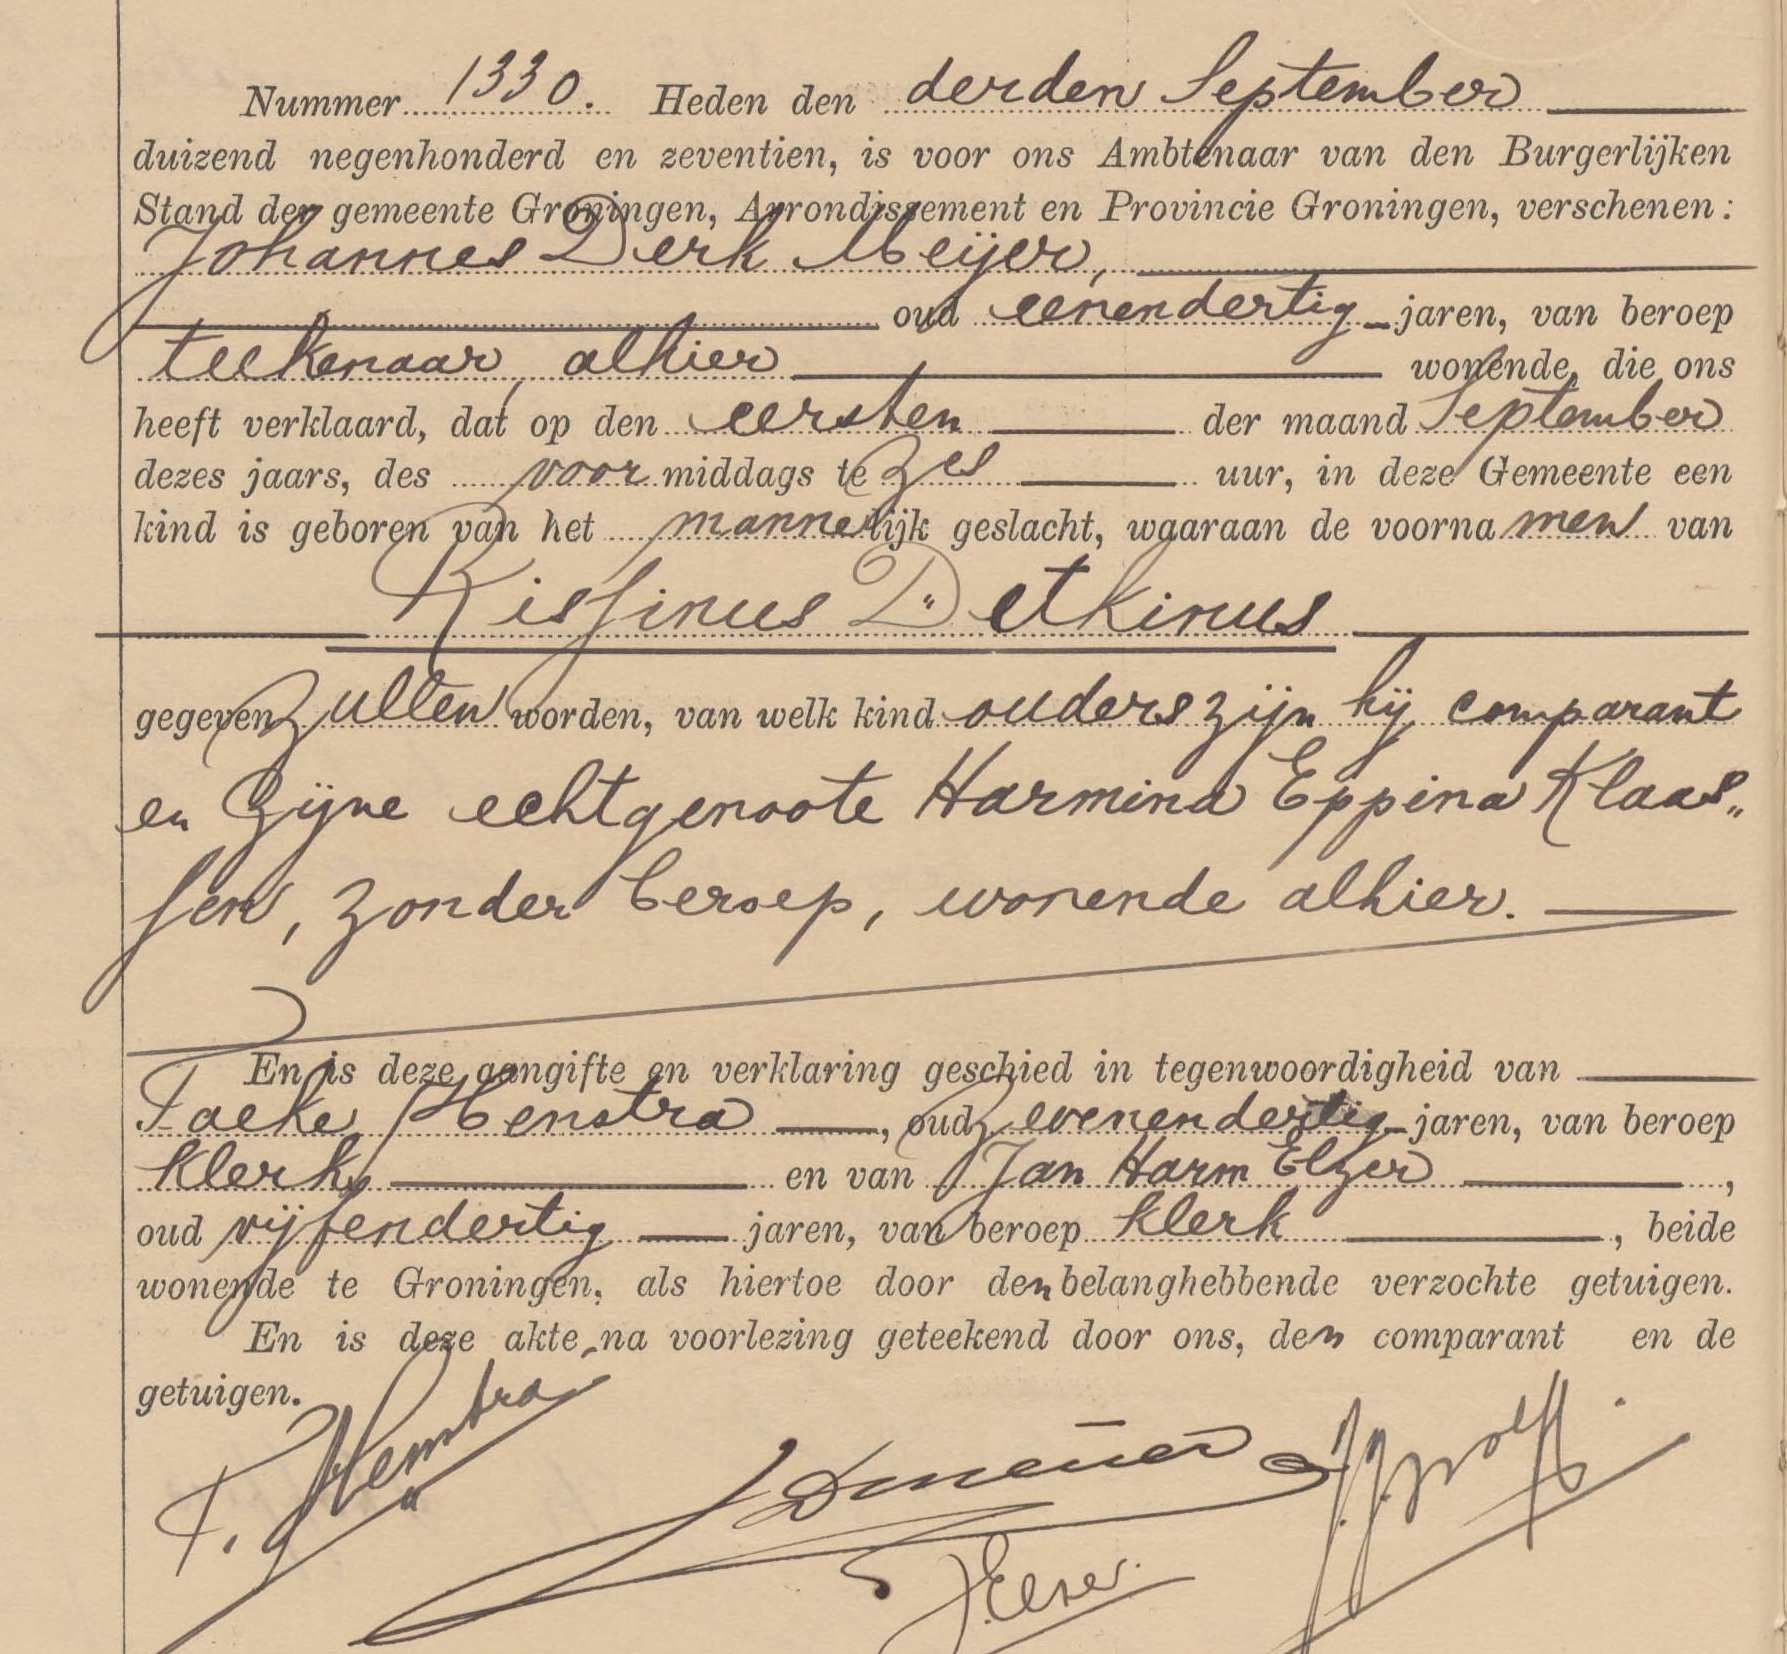 Nummer 1330. Heden den derden September
duizend negenhonderd en zeventien, is voor ons Ambtenaar van den Burgerlijken
Stand der gemeente Groningen, Arrondissement en Provincie Groningen, verschenen:
Johannes Derk Meijer,
oud eenendertig jaren, van beroep
teekenaar, alhier wonende, die ons
heeft verklaard, dat op den eersten der maand September
dezes jaars, des voormiddags te zes uur, in deze Gemeente een
kind is geboren van het mannelijk geslacht, waaraan de voornamen van
Rissinus Detkinus
gegeven zullen worden, van welk kind ouders zijn hij comparant
en zijne echtgenoote Harmina Eppina Klaas„
sen, zonder beroep, wonende alhier.
En is deze aangifte en verklaring geschied in tegenwoordigheid van
Taeke Hemstra, oud zevenendertig jaren, van beroep
klerk en van Jan Harm Elzer,
oud vijfendertig jaren, van beroep klerk, beide
wonende te Groningen, als hiertoe door den belanghebbende verzochte getuigen.
En is deze akte, na voorlezing geteekend door ons, den comparant en de
getuigen.
T. Hemstra
JDMeijer
JElzer